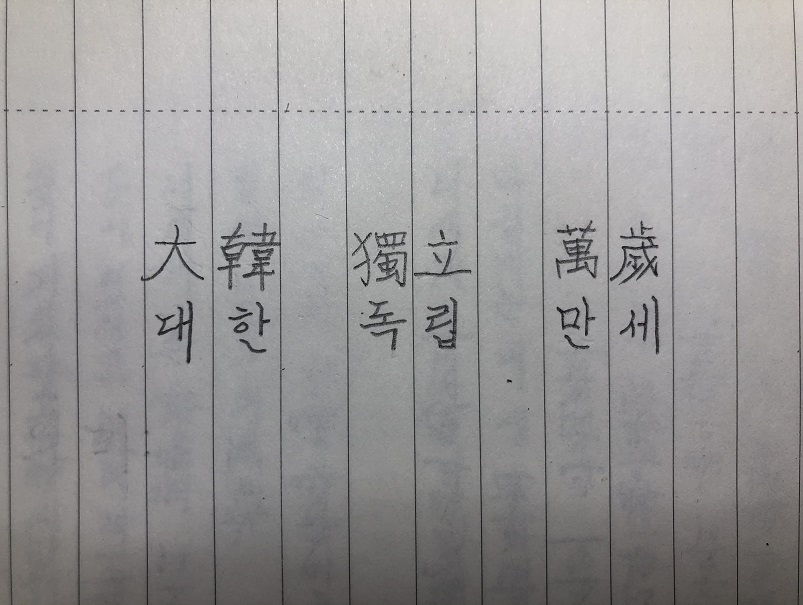 大韓 獨立 萬歲
대한 독립 만세